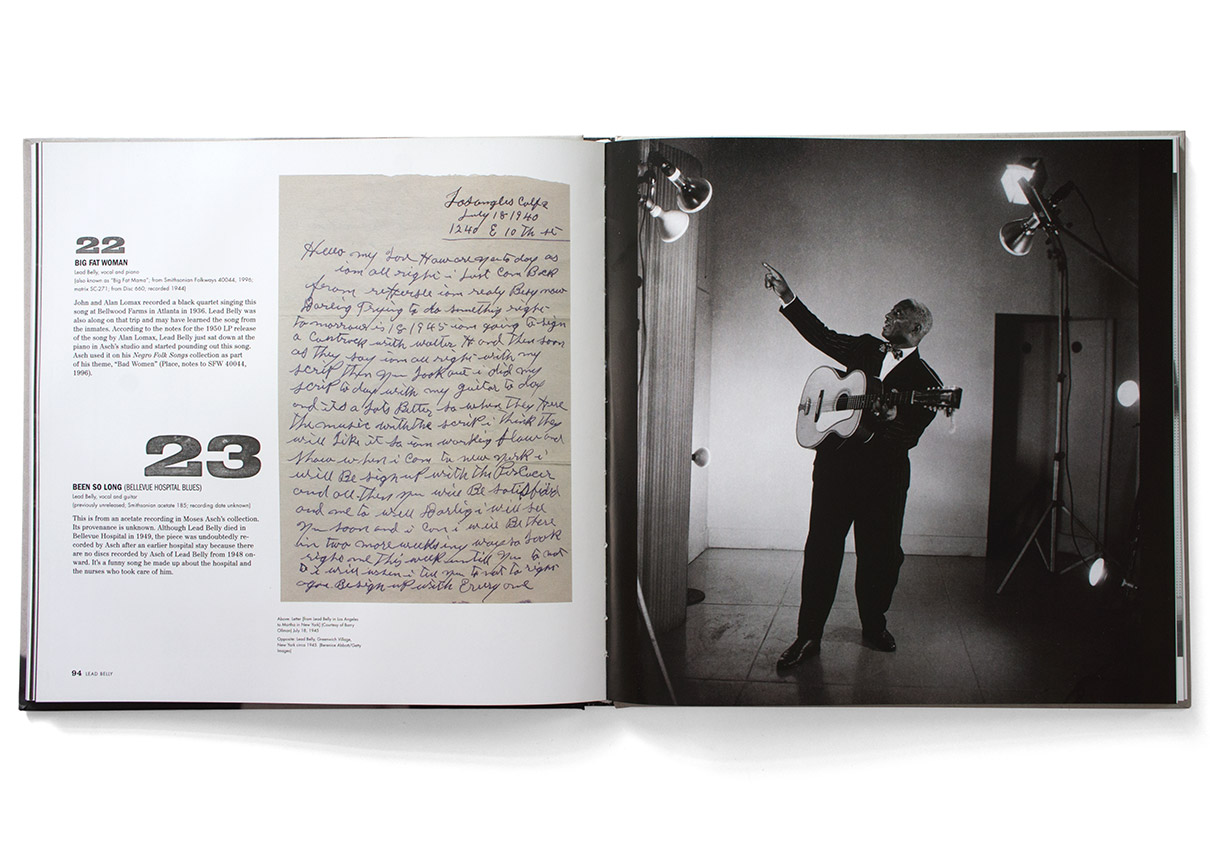 22
BIG FAT WOMAN
Lead Belly, vocal and piano
(also known as "Big Fat Mama"; from Smithsonian Folkways 40044, 1996;
matrix SC-271; from Disc 660, recorded 1944)
John and Alan Lomax recorded a black quartet singing this
song at Bellwood Farms in Atlanta in 1936. Lead Belly was
also along on that trip and may have learned the song from
the inmates. According to the notes for the 1950 LP release
of the song by Alan Lomax, Lead Belly just sat down at the
piano in Asch's studio and started pounding out this song.
Asch used it on his Negro Folk Songs collection as part
of his theme, "Bad Women" (Place, notes to SFW 40044,
1996).
23
BEEN SO LONG (BELLEVUE HOSPITAL BLUES)
Lead Belly, vocal and guitar
(previously unreleased, Smithsonian acetate 185; recording date unknown)
This is from an acetate recording in Moses Asch's collection.
Its provenance is unknown. Although Lead Belly died in
Bellevue Hospital in 1949, the piece was undoubtedly re-
corded by Asch after an earlier hospital stay because there
are no discs recorded by Asch of Lead Belly from 1948 on-
ward. It's a funny song he made up about the hospital and
the nurses who took care of him.
Losangles Calfa
July 18 1940
1240 E 10 Th st
Hello my Love How are you to day as
iam all right i Just Com Back
from iam realy Busy now
Darling Trying to do something right
tomorrow is 18 1945 iam going to sign
a Contrack with walter H and then soon
as they say iam all right with my
scrip then you Look out i did my
scrip to day with my guitar to day
and its a Lots Better so when they Here
the music with the script i think they
will Like it so iam working slow and
show when i Com to new york i
will Be sign up with the
and all then you will Be satisfide
and me to well Darlig i will see
you soon and i Com i will Be there
in two more weeks ways so Look
right one this week untill you to not
D i will when i tell you to not to right
agen. Be sign up with Every one
Above: Letter [from Lead Belly in Los Angeles
to Martha in New York] (Courtesy of Barry
Ollman) July 18, 1945
Opposite: Lead Belly, Greenwich Village,
New York circa 1945 (Berenice Abbott/Getty
Images)
94 LEAD BELLY